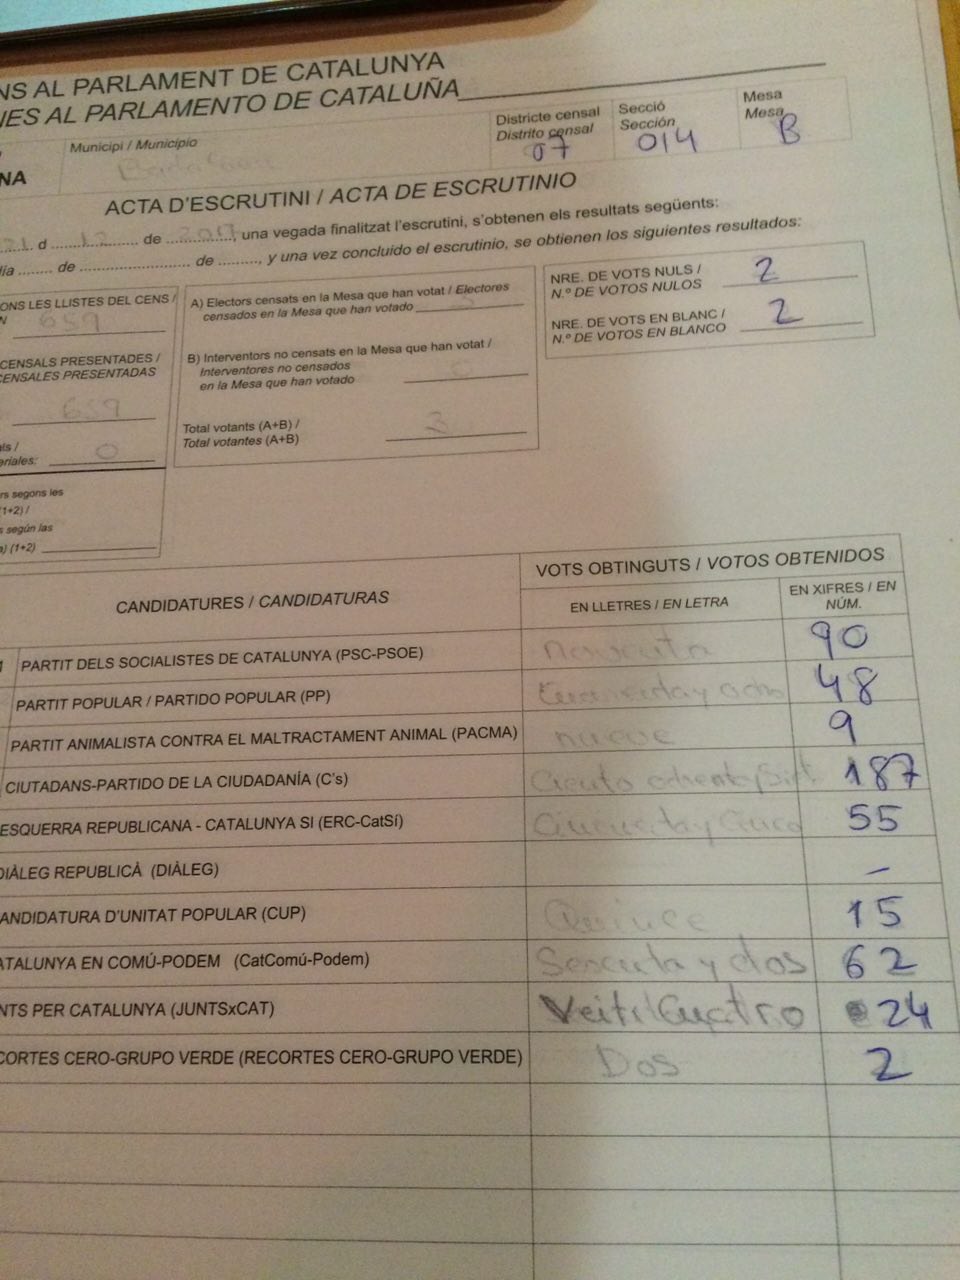 NS AL PARLAMENT DE CATALUNYA
NES AL PARLAMENTO DE CATALUÑA
NA
Municipi / Municipio
Districte censal
Distrito censal
07
Secció
Sección
014
Mesa
Mesa
B
ACTA D'ESCRUTINI / ACTA DE ESCRUTINIO
21 d 12 de 2017, una vegada finalitzat l'escrutini, s'obtenen els resultats següents:
ía ........ de .............................. de ........., y una vez concluido el escrutinio, se obtienen los siguientes resultados:
ONS LES LLISTES DEL CENS /
N 659
CENSALS PRESENTADES /
CENSALES PRESENTADAS
659
als /
eriales: 0
rs segons les
(1+2) /
s según las
a) (1+2)
A) Electors censats en la Mesa que han votat / Electores
censados en la Mesa que han votado
B) Interventors no censats en la Mesa que han votat /
Interventores no censados
en la Mesa que han votado
0
Total votants (A+B) /
Total votantes (A+B)
3
NRE. DE VOTS NULS /
N.º DE VOTOS NULOS
2
NRE. DE VOTS EN BLANC /
N.º DE VOTOS EN BLANCO
2
CANDIDATURES / CANDIDATURAS
VOTS OBTINGUTS / VOTOS OBTENIDOS
EN LLETRES / EN LETRA
EN XIFRES / EN
NÚM.
1 PARTIT DELS SOCIALISTES DE CATALUNYA (PSC-PSOE) noventa 90
PARTIT POPULAR / PARTIDO POPULAR (PP) cuarenta y ocho 48
PARTIT ANIMALISTA CONTRA EL MALTRACTAMENT ANIMAL (PACMA) nueve 9
CIUTADANS-PARTIDO DE LA CIUDADANÍA (C's) 187
ESQUERRA REPUBLICANA - CATALUNYA SI (ERC-CatSí) 55
DIÀLEG REPUBLICÀ (DIÀLEG) –
ANDIDATURA D'UNITAT POPULAR (CUP) Quince 15
ATALUNYA EN COMÚ-PODEM (CatComú-Podem) Sesenta y dos 62
NTS PER CATALUNYA (JUNTSxCAT) Veiti Cuatro 24
CORTES CERO-GRUPO VERDE (RECORTES CERO-GRUPO VERDE) Dos 2